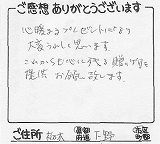 ご感想 ありがとうございます
心暖まるプレゼントになり
大変うれしく思います。
これからも心に残る贈り物を
提供 お願い致します
ご住所 栃木 都道府県 下野 市区町村